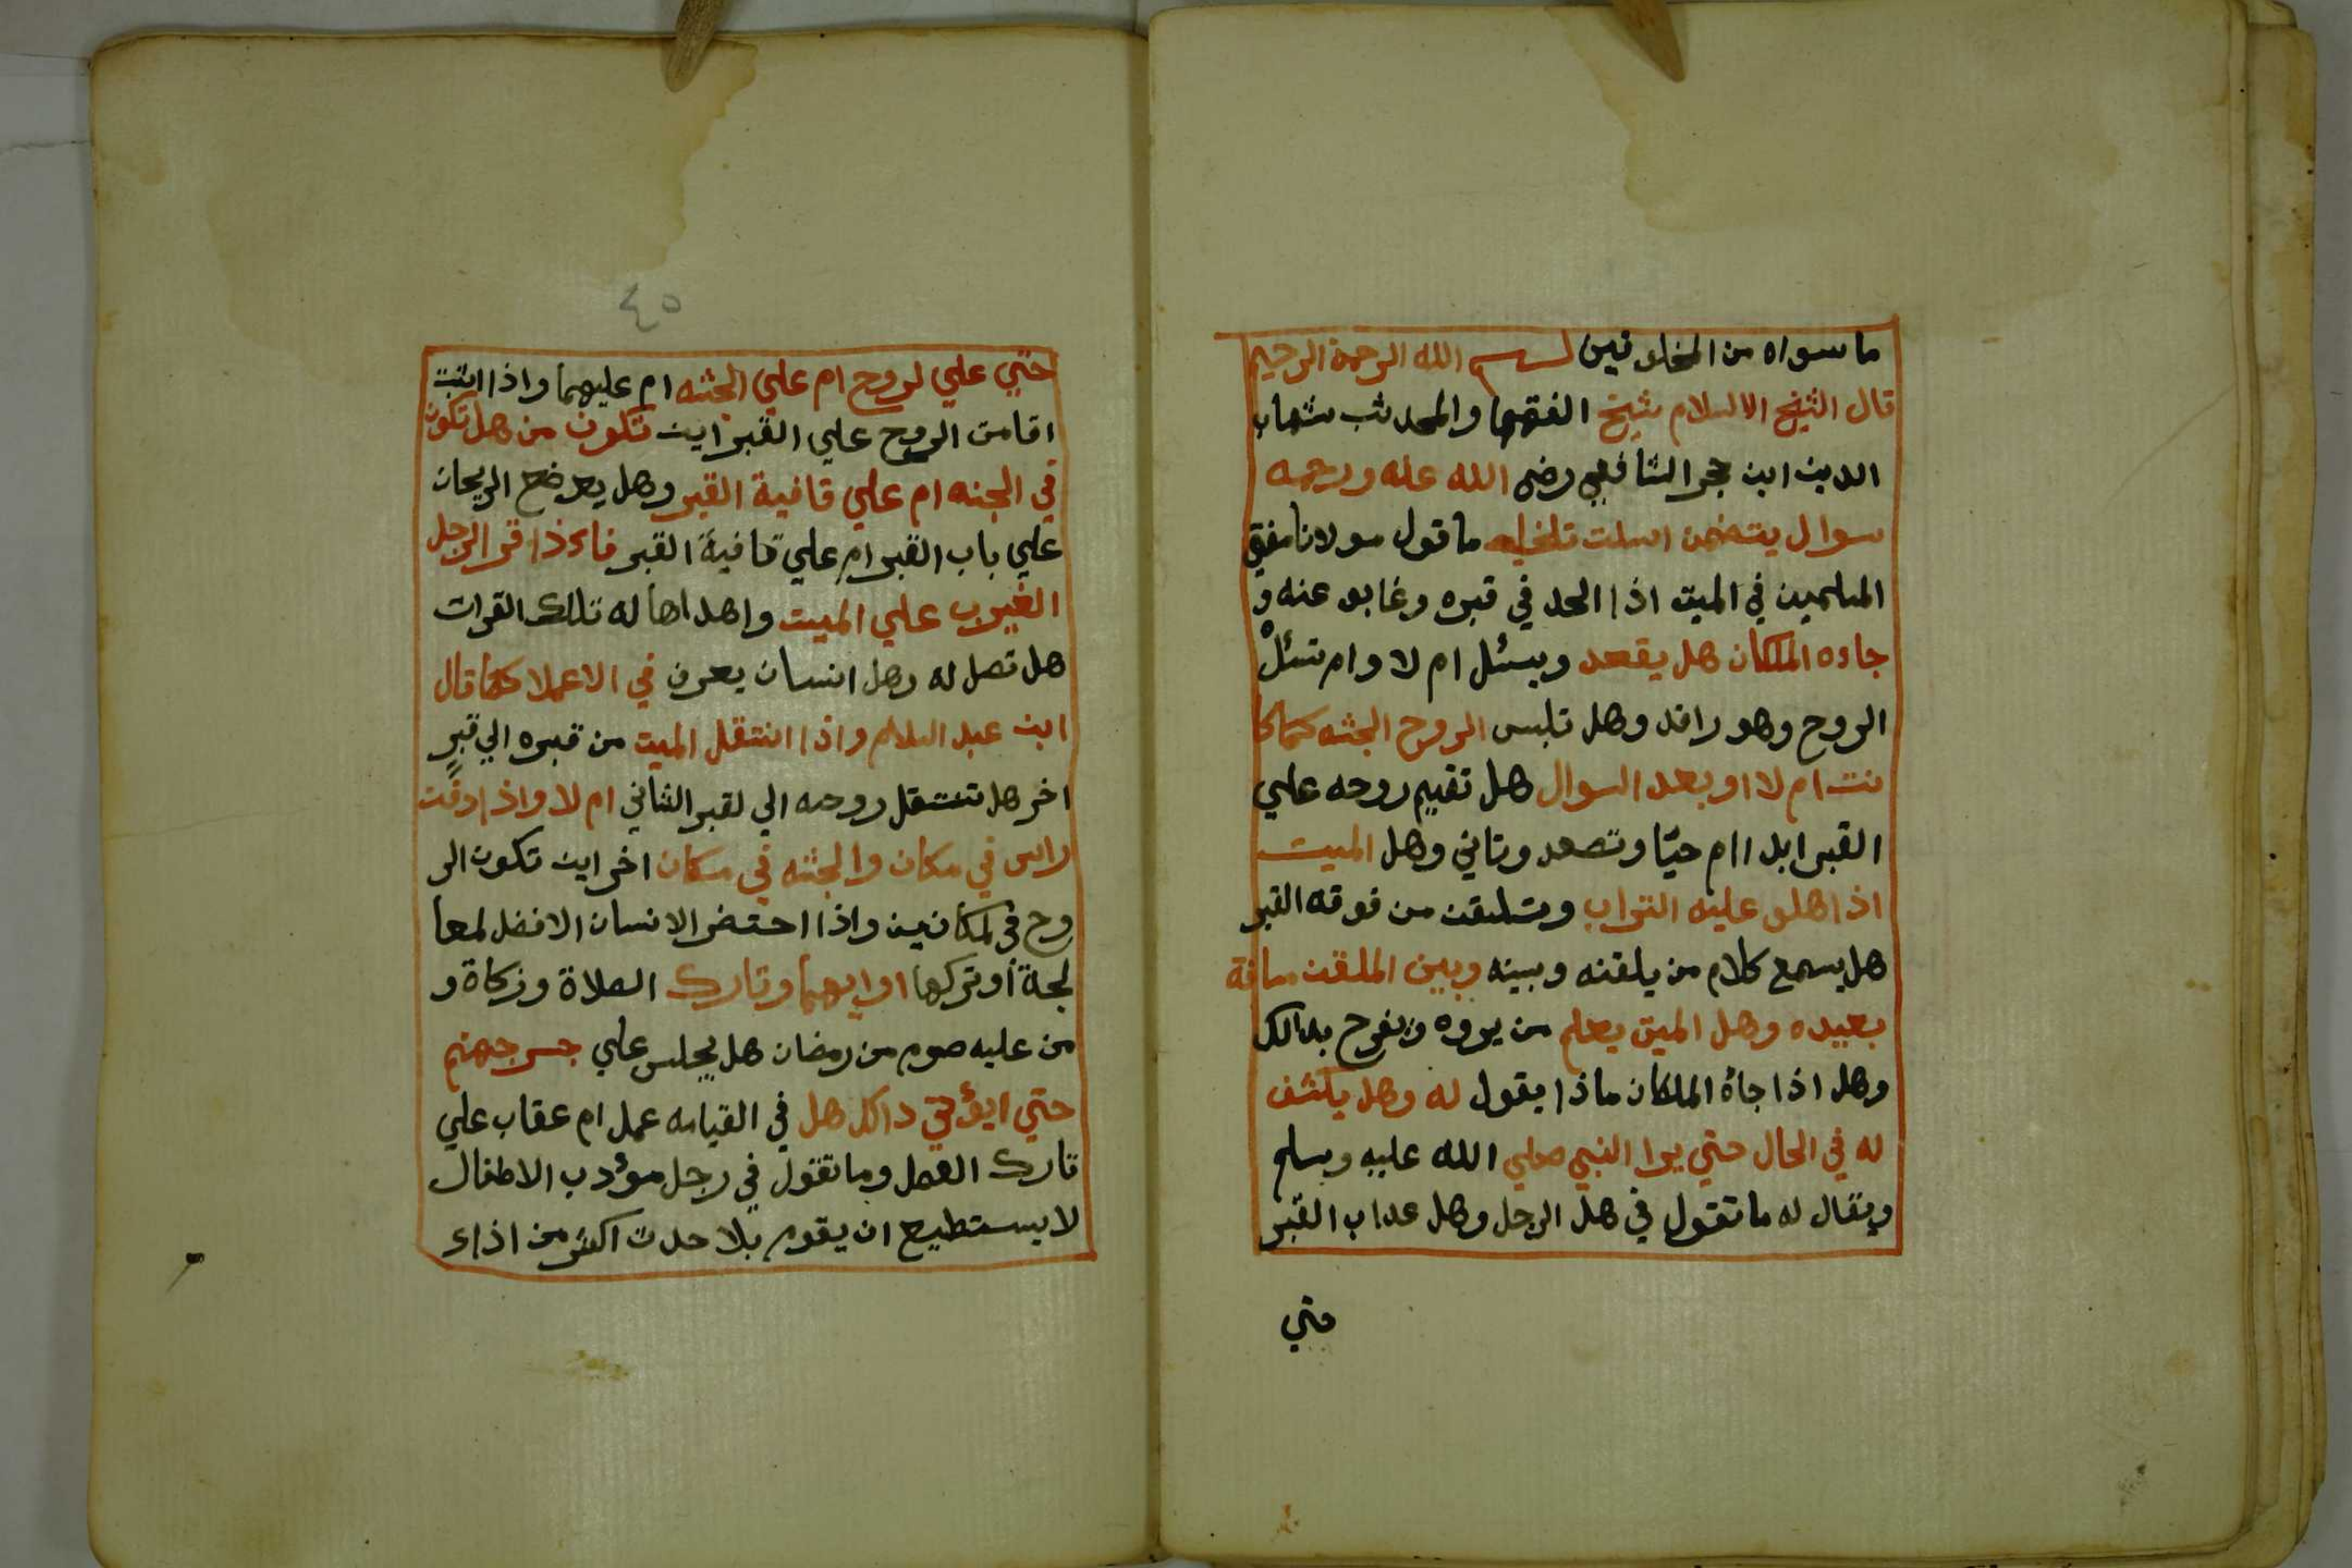 ما سواه من المخلوقين بسم الله الرحمن الرحيم
قال الشيخ الاسلام شيخ الفقها والمحدثب شهاب
الدين ابن حجر الشافعي رضي الله عنه ورحمه
سوال يتضمن اسلت ما قول مولانا مفتي
المسلمين في الميت اذا الحد في قبره وغابو عنه و
جاءه الملكان هل يقعد ويسئل ام لا وام تسئل
الروح وهو راقد وهل تلبس الروح الجثه كما كا
نت ام لا او بعد السوال هل تقيم روحه علي
القبر ابدا ام حيّا وتصعد وتاني وهل الميت
اذا هلو عليه التراب وتلقن من فوقه القبر
هل يسمع كلام من يلقنه وبينه وبين الملقن مسافة
بعيده وهل الميت يعلم من يروه ويفرح بدالك
وهل اذا جاهُ الملكان ماذا يقول له وهل يكشف
له في الحال حتي يرا النبي صلي الله عليه وسلم
ويقال له ما تقول في هل الرجل وهل عداب القبر
حتي
٤٥
حتي علي لروح ام علي الجثه ام عليهما واذا
اقامت الروح علي القبر اين تكون من هل تكون
في الجنه ام علي قافية القبر وهل يعرضح الريحان
علي باب القبر ام علي قافية القبر فاءذا قرا الرجل
الغيوب علي الميت واهداها له تلك القرات
هل تصل له وهل انسان يعرف في الاعملا كما قال
ابن عبد السلام واذا انتقل الميت من قبره الي قبرٍ
اخر هل تنتقل روحه الي لقبر الثاني ام لا واذا دفنت
راس في مكان والجثه في مكان اخر اين تكون الر
وح في لمكانين واذا احتضر الانسان الافضل لمعا
لجة او تركها او ايهما وتارك الصلاة وزكاة و
من عليه صوم من رمضان هل يجلس علي جسر جهنم
حتي ايؤدي دالك هل في القيامه عمل ام عقاب علي
تارك العمل وما تقول في رجل مودب الاطفال
لا يستطيع ان يقوم بلا حدث اكثر من اذاء